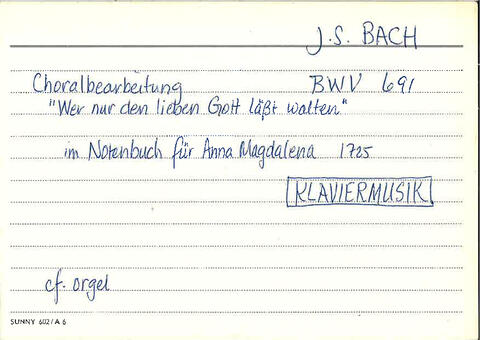 J.S. BACH
Choralbearbeitung BWV 691
"Wer nur den lieben Gott läßt walten"
im Notenbuch für Anna Magdalena 1725
KLAVIERMUSIK
cf. orgel
SUNNY 602/A 6